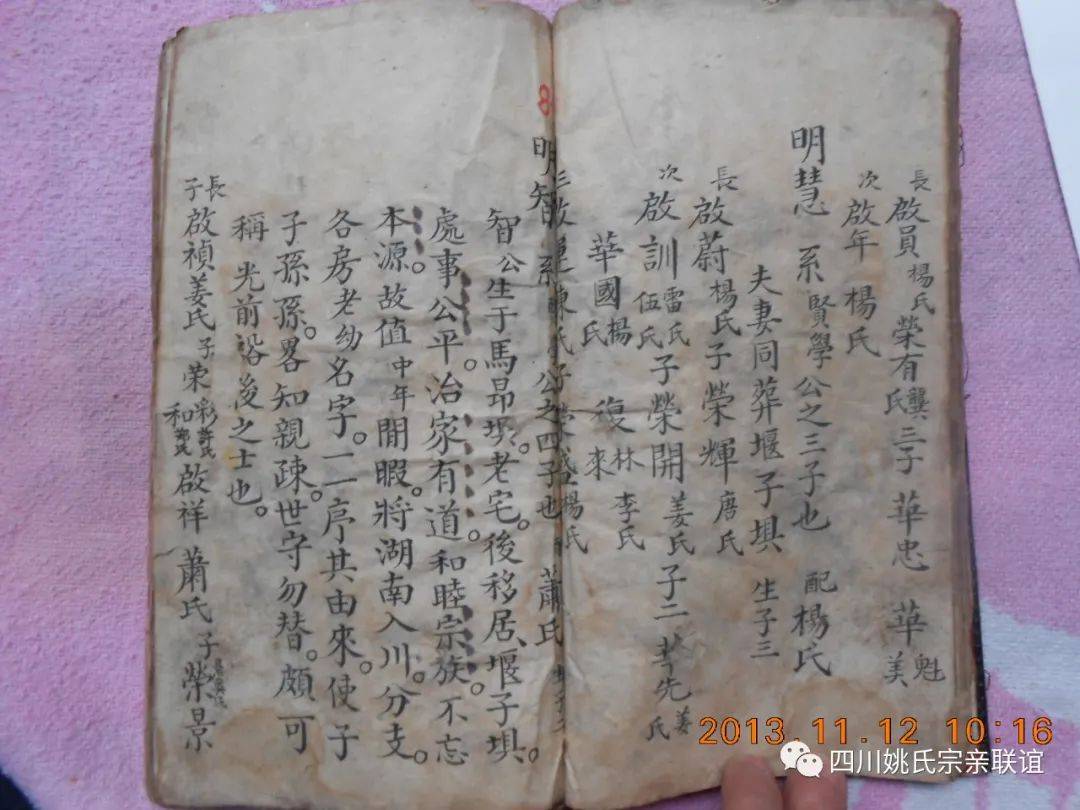 長啟員楊氏榮有龔氏三子華忠 華魁 美
次啟年楊氏
明慧 系賢學公之三子也 配楊氏
夫妻同葬堰子埧 生子三
長啟蔚楊氏子榮輝唐氏
次啟訓雷氏伍氏子榮開姜氏子二華先姜氏
華國楊氏 復林李氏 來
明智系 公之四子也 蕭氏
智公生于馬昂埧。老宅。後移居、堰子埧。
處事公平。治家有道。和睦宗族。不忘
本源。故值中年閒暇。將湖南入川。分支。
各房老幼名字。一一序其由來。使子
子孫孫。畧知親疎。世字勿替。頗可
稱 光前裕後之士也。
長子啟禎姜氏子荣彩許氏 和鄭氏 啟祥 蕭氏子榮景
8
2013.11.12 10:16
四川姚氏宗亲联谊